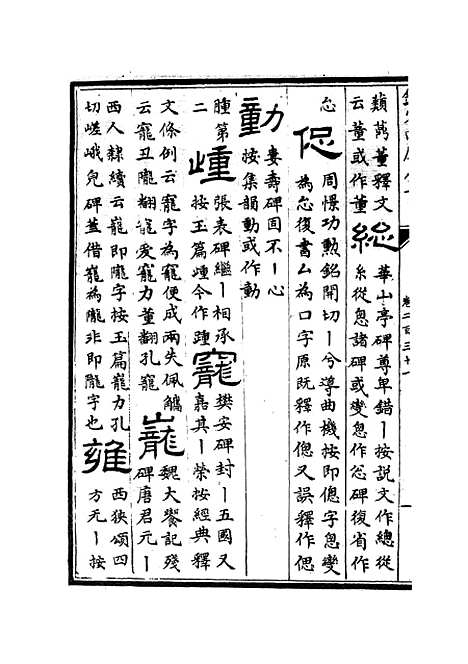 卷二百三十一
董釋文
云董或作董
總
華山亭碑尊卑錯丨按説文作總從
糸從悤諸碑或變悤作怱碑復省作
怱
偬
周憬功勳銘開切丨兮導曲機按即偬字悤變
為怱復書厶為口字原既釋作偬又誤釋作偲
動
婁壽碑固不丨心
按集韻動或作動
腫第
二
㙲
張表碑繼丨相承
按玉篇㙲今作踵
寵
樊安碑封丨五國又
嘉其丨榮按經典釋
文條例云寵字為寵便成兩失佩觿
云寵丑隴翻寵愛寵力董翻孔寵
巃
魏大饗記殘
碑唐君元丨
西人隸續云巃即隴字按玉篇巃力孔
切嵯峨皃碑蓋借巃為隴非即隴字也
雍
西狹頌四
方元丨按